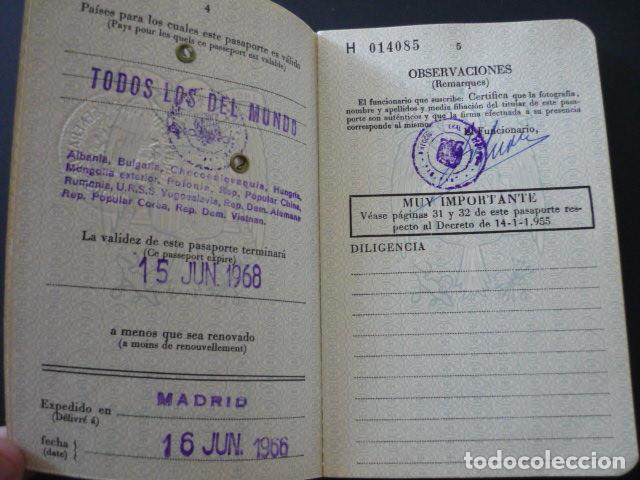 4
Países para los cuales este pasaporte es válido
(Pays pour les quels ce passeport est valable)
TODOS LOS DEL MUNDO
Albania, Bulgaria, Checoeslovaquia, Hungría,
Mongolia exterior, Polonia, Rep. Popular China,
Rumania, U.R.S.S. Yugoeslavia, Rep. Dem. Alemana
Rep. Popular Corea, Rep. Dem. Vietnan.
La validez de este pasaporte terminará
(Ce passeport expire)
15 JUN. 1968
a menos que sea renovado
(a moins de renouvellement)
Expedido en
(Délivré à)
MADRID
fecha
(date)
16 JUN. 1966
H 014085 5
OBSERVACIONES
(Remarques)
El funcionario que suscribe: Certifica que la fotografía,
nombre y apellidos y media filiación del titular de este pasa-
porte son auténticos y que la firma efectuada a su presencia
corresponde al mismo.
El Funcionario,
MUY IMPORTANTE
Véase páginas 31 y 32 de este pasaporte res-
pecto al Decreto de 14-1-1.955
DILIGENCIA
todocoleccion.net